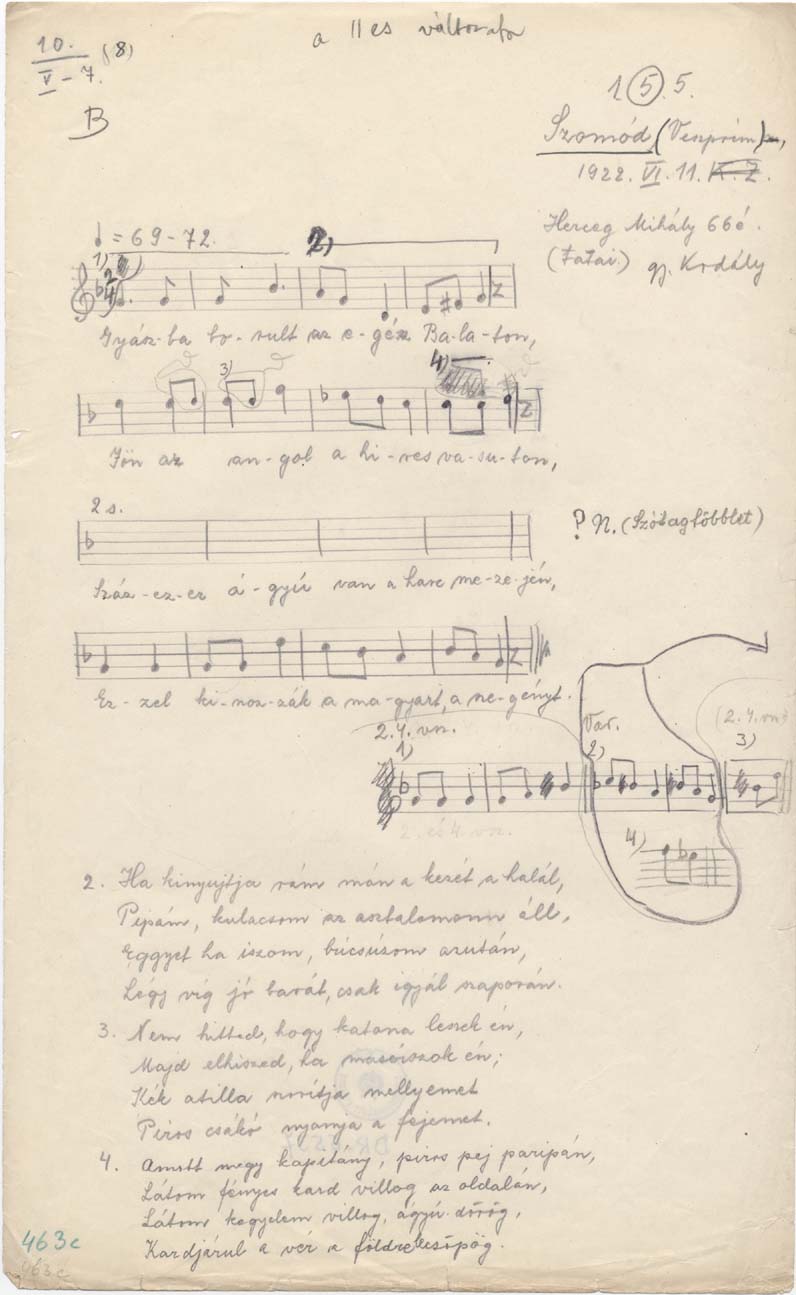 a II es
10. (8)
V - 7.
B
1 5. 5.
Szomód (Veszprém),
1922. VI. 11. K. Z.
Herceg Mihály 66 é.
(Tatai.) gj. Kodály
♩ = 69-72.
1) 2)
2/4
Gyász-ba bo-rult az e-gész Ba-la-ton,
3) 4)
Jön az an-gol a hi-res va-su-ton,
2 s.
? N. (Szótagtöbblet)
Száz-ez-er á-gyú van a harc me-ze-jén,
Ez-zel ki-noz-zák a ma-gyart, a sze-gényt.
2. 4. vsz.
1)
Var.
2)
(2. 4. vsz)
3)
2. és 4. vsz.
4)
2. Ha kinyujtja rám mán a kezét a halál,
Pipám, kulacsom az asztalomonn áll,
Eggyet ha iszom, búcsúzom azután,
Légy víg jó barát, csak igyál szaporán.
3. Nem hitted, hogy katona leszek én,
Majd elhiszed, ha masérszok én;
Kék atilla szorítja mellyemet
Piros csákó nyomja a fejemet.
4. Amott megy kapitány, piros pej paripán,
Látom fényes kard villog az oldalán,
Látom kegyelem villog, ágyú dörög,
Kardjárul a vér a földre lecsöpög.
463c
463 c